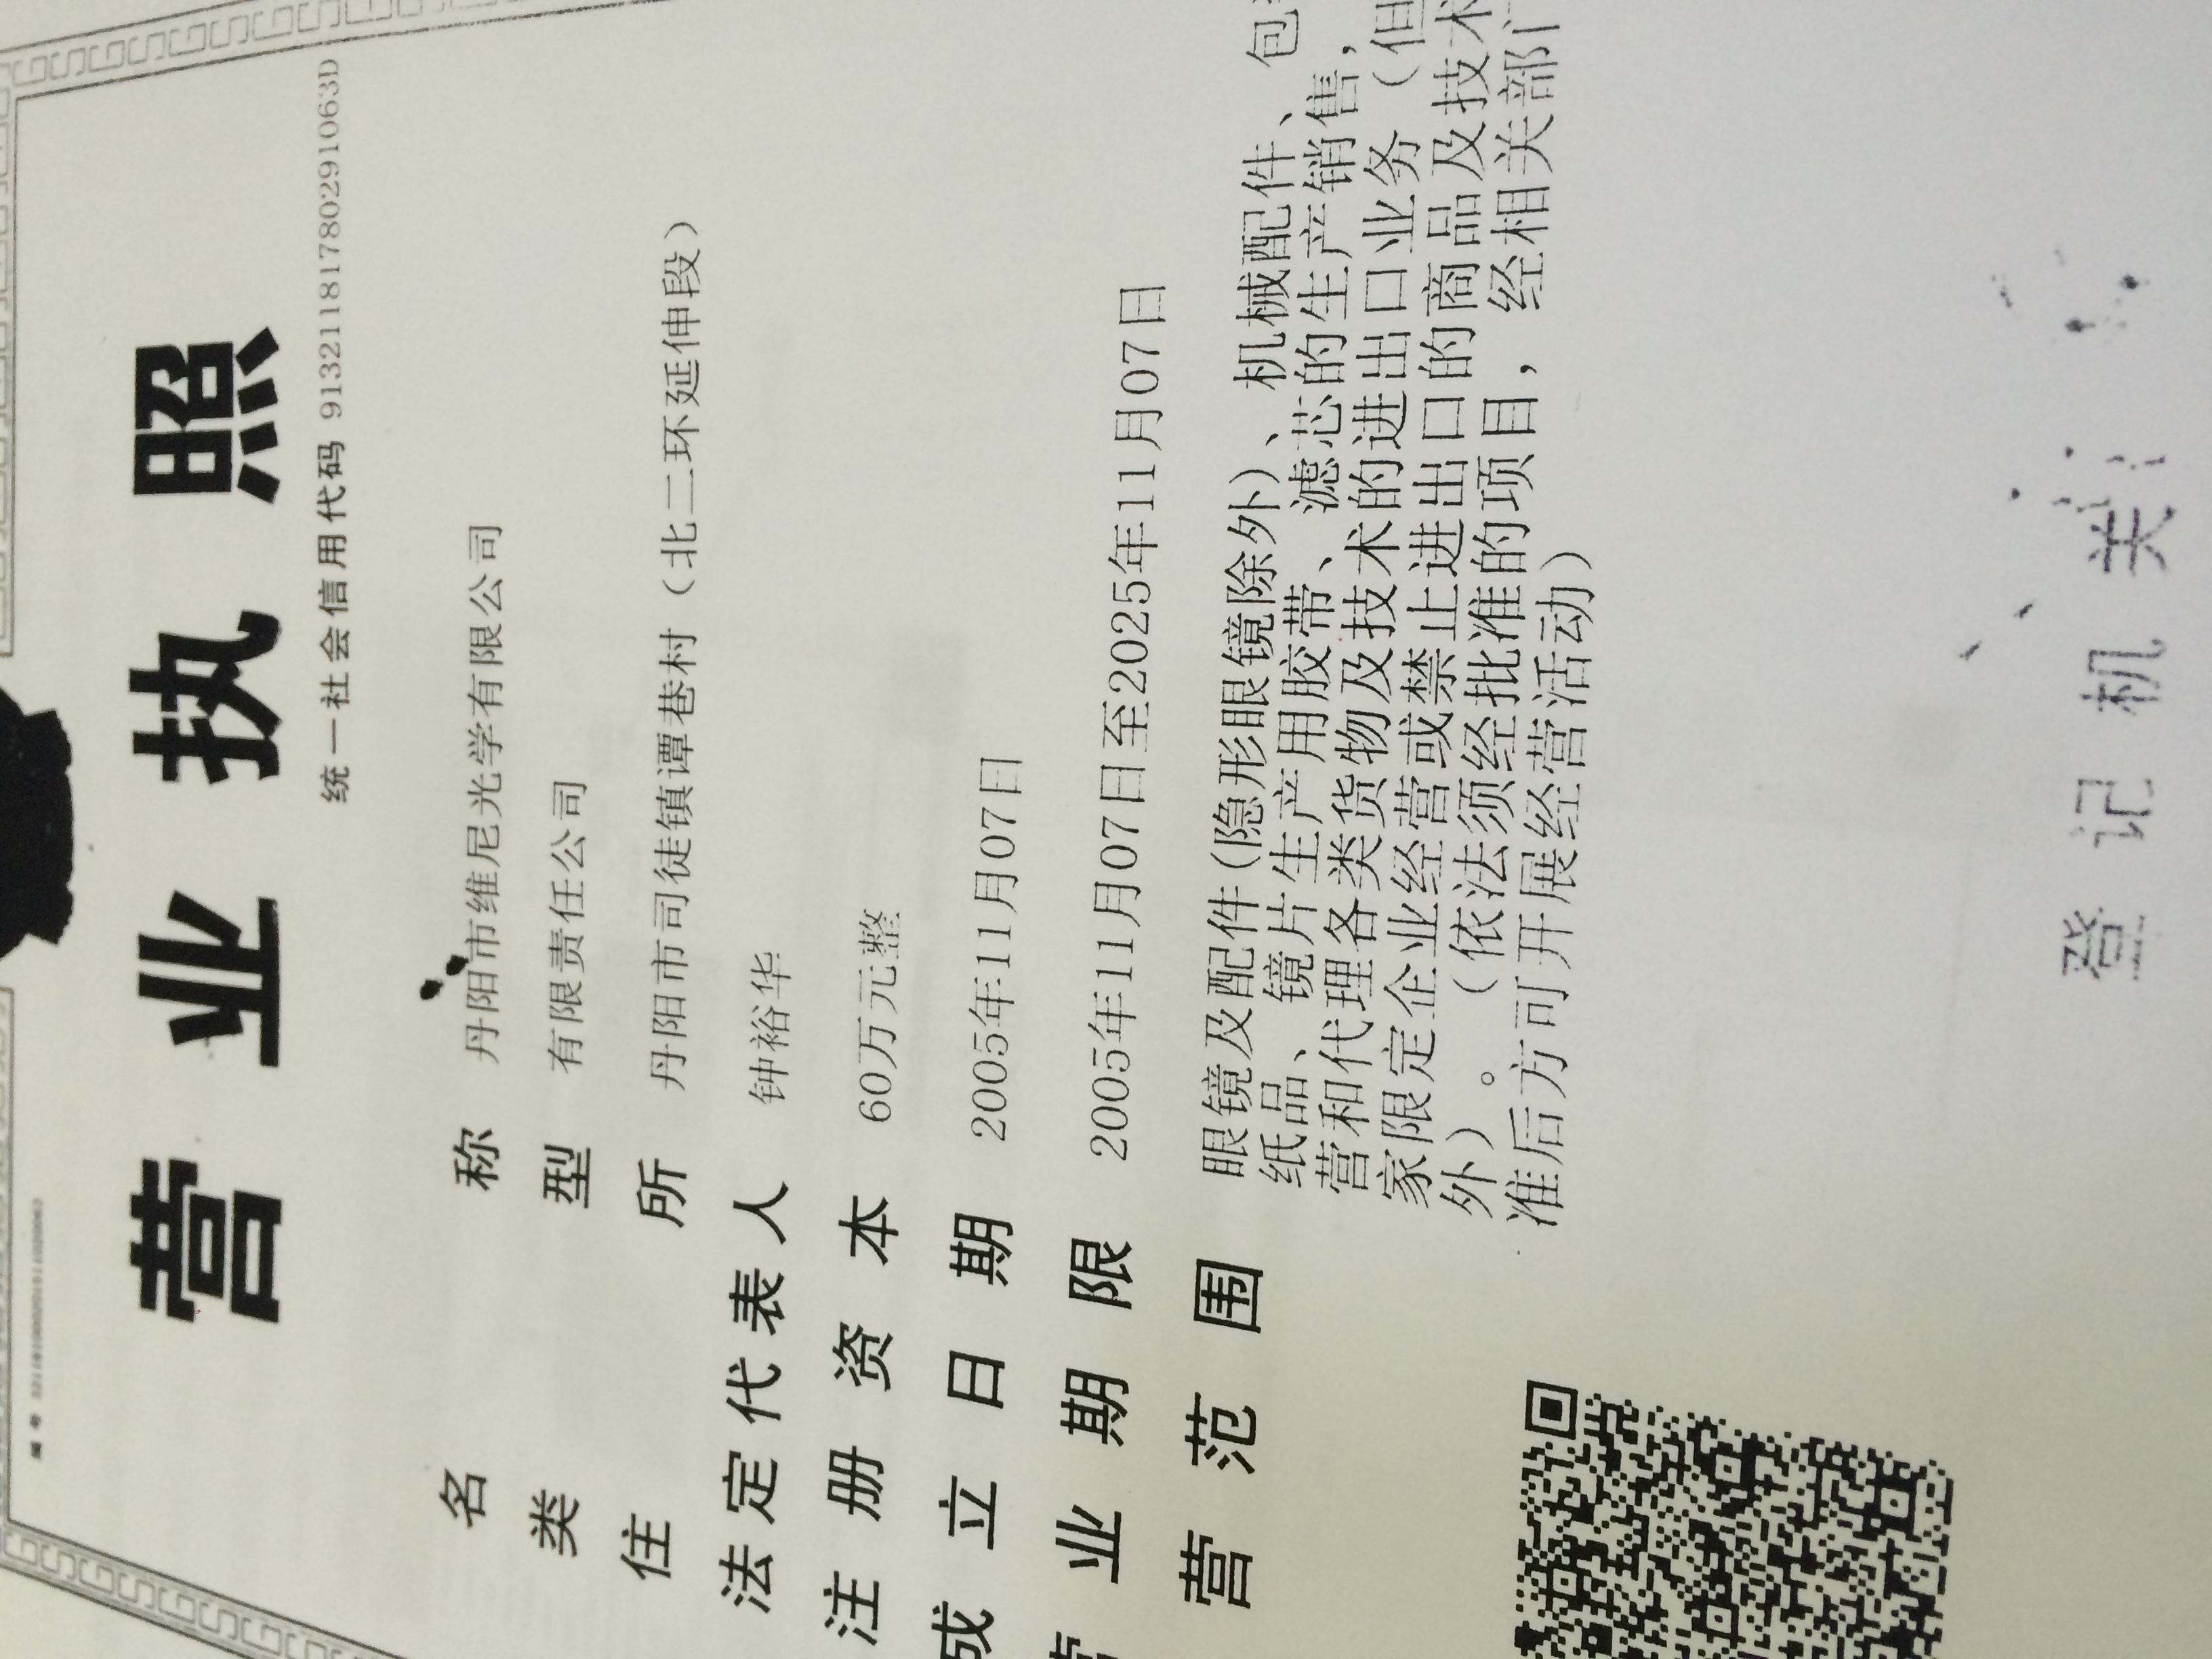 编号
营业执照
统一社会信用代码 913211817780291063D
名称 丹阳市维尼光学有限公司
类型 有限责任公司
住所 丹阳市司徒镇谭巷村（北二环延伸段）
法定代表人 钟裕华
注册资本 60万元整
成立日期 2005年11月07日
营业期限 2005年11月07日至2025年11月07日
营范围 眼镜及配件(隐形眼镜除外)、机械配件、包
纸品、镜片生产用胶带、滤芯的生产销售，
营和代理各类货物及技术的进出口业务（但
家限定企业经营或禁止进出口的商品及技术
外）。（依法须经批准的项目，经相关部门
准后方可开展经营活动）
登记机关